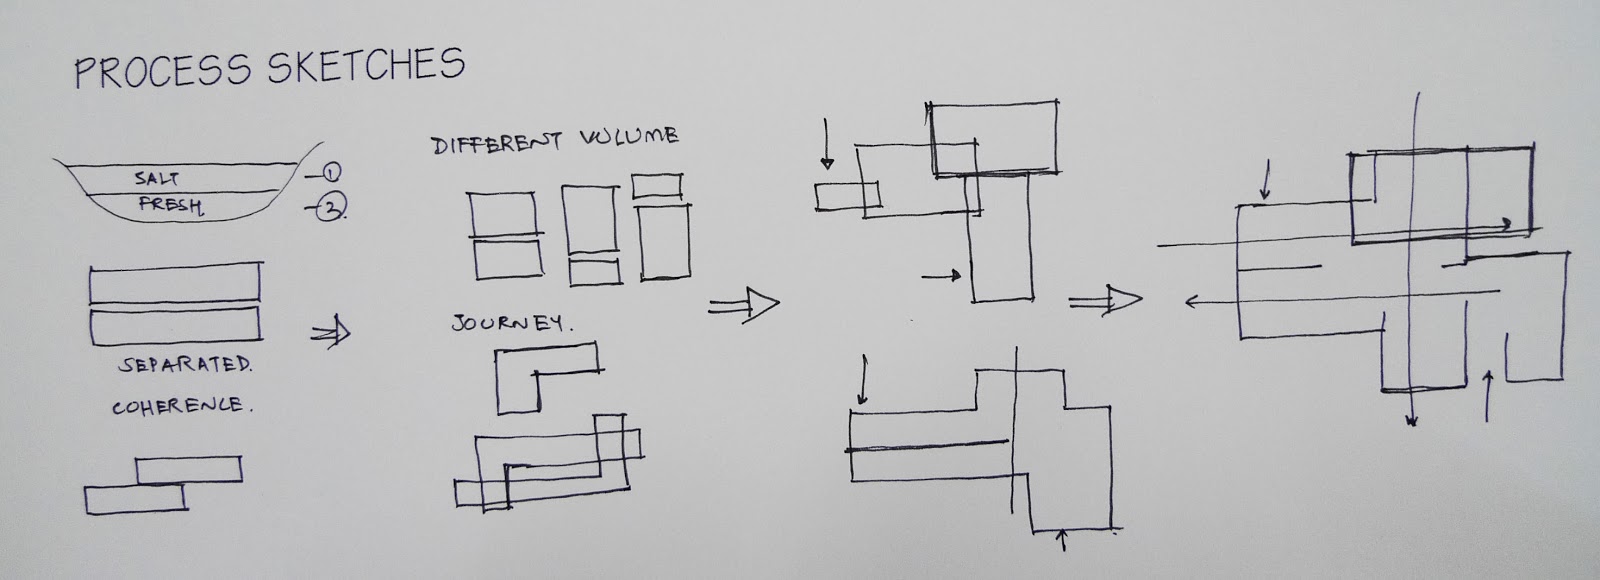 PROCESS SKETCHES
SALT
①
FRESH
②.
SEPARATED.
COHERENCE.
DIFFERENT VOLUME
JOURNEY.